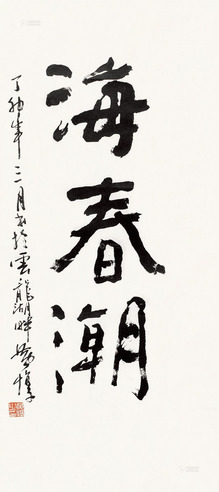 海春潮
丁卯年三月书於雲龍湖畔